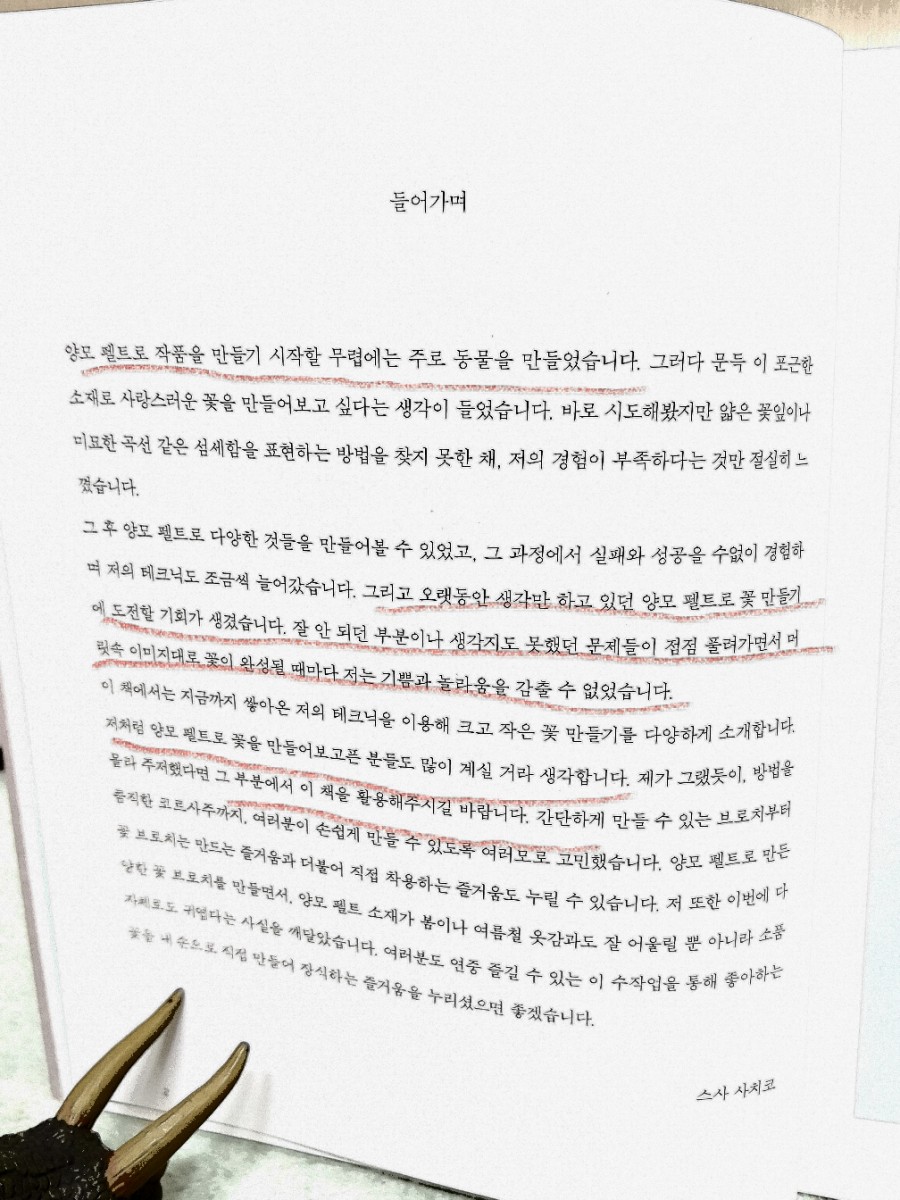 들어가며
양모 펠트로 작품을 만들기 시작할 무렵에는 주로 동물을 만들었습니다. 그러다 문득 이 포근한
소재로 사랑스러운 꽃을 만들어보고 싶다는 생각이 들었습니다. 바로 시도해봤지만 얇은 꽃잎이나
미묘한 곡선 같은 섬세함을 표현하는 방법을 찾지 못한 채, 저의 경험이 부족하다는 것만 절실히 느
꼈습니다.
그 후 양모 펠트로 다양한 것들을 만들어볼 수 있었고, 그 과정에서 실패와 성공을 수없이 경험하
며 저의 테크닉도 조금씩 늘어갔습니다. 그리고 오랫동안 생각만 하고 있던 양모 펠트로 꽃 만들기
에 도전할 기회가 생겼습니다. 잘 안 되던 부분이나 생각지도 못했던 문제들이 점점 풀려가면서 머
릿속 이미지대로 꽃이 완성될 때마다 저는 기쁨과 놀라움을 감출 수 없었습니다.
이 책에서는 지금까지 쌓아온 저의 테크닉을 이용해 크고 작은 꽃 만들기를 다양하게 소개합니다.
저처럼 양모 펠트로 꽃을 만들어보고픈 분들도 많이 계실 거라 생각합니다. 제가 그랬듯이, 방법을
몰라 주저했다면 그 부분에서 이 책을 활용해주시길 바랍니다. 간단하게 만들 수 있는 브로치부터
큼직한 코르사주까지, 여러분이 손쉽게 만들 수 있도록 여러모로 고민했습니다. 양모 펠트로 만든
꽃 브로치는 만드는 즐거움과 더불어 직접 착용하는 즐거움도 누릴 수 있습니다. 저 또한 이번에 다
양한 꽃 브로치를 만들면서, 양모 펠트 소재가 봄이나 여름철 옷감과도 잘 어울릴 뿐 아니라 소품
자체로도 귀엽다는 사실을 깨달았습니다. 여러분도 연중 즐길 수 있는 이 수작업을 통해 좋아하는
꽃을 내 손으로 직접 만들어 장식하는 즐거움을 누리셨으면 좋겠습니다.
스사 사치코
2